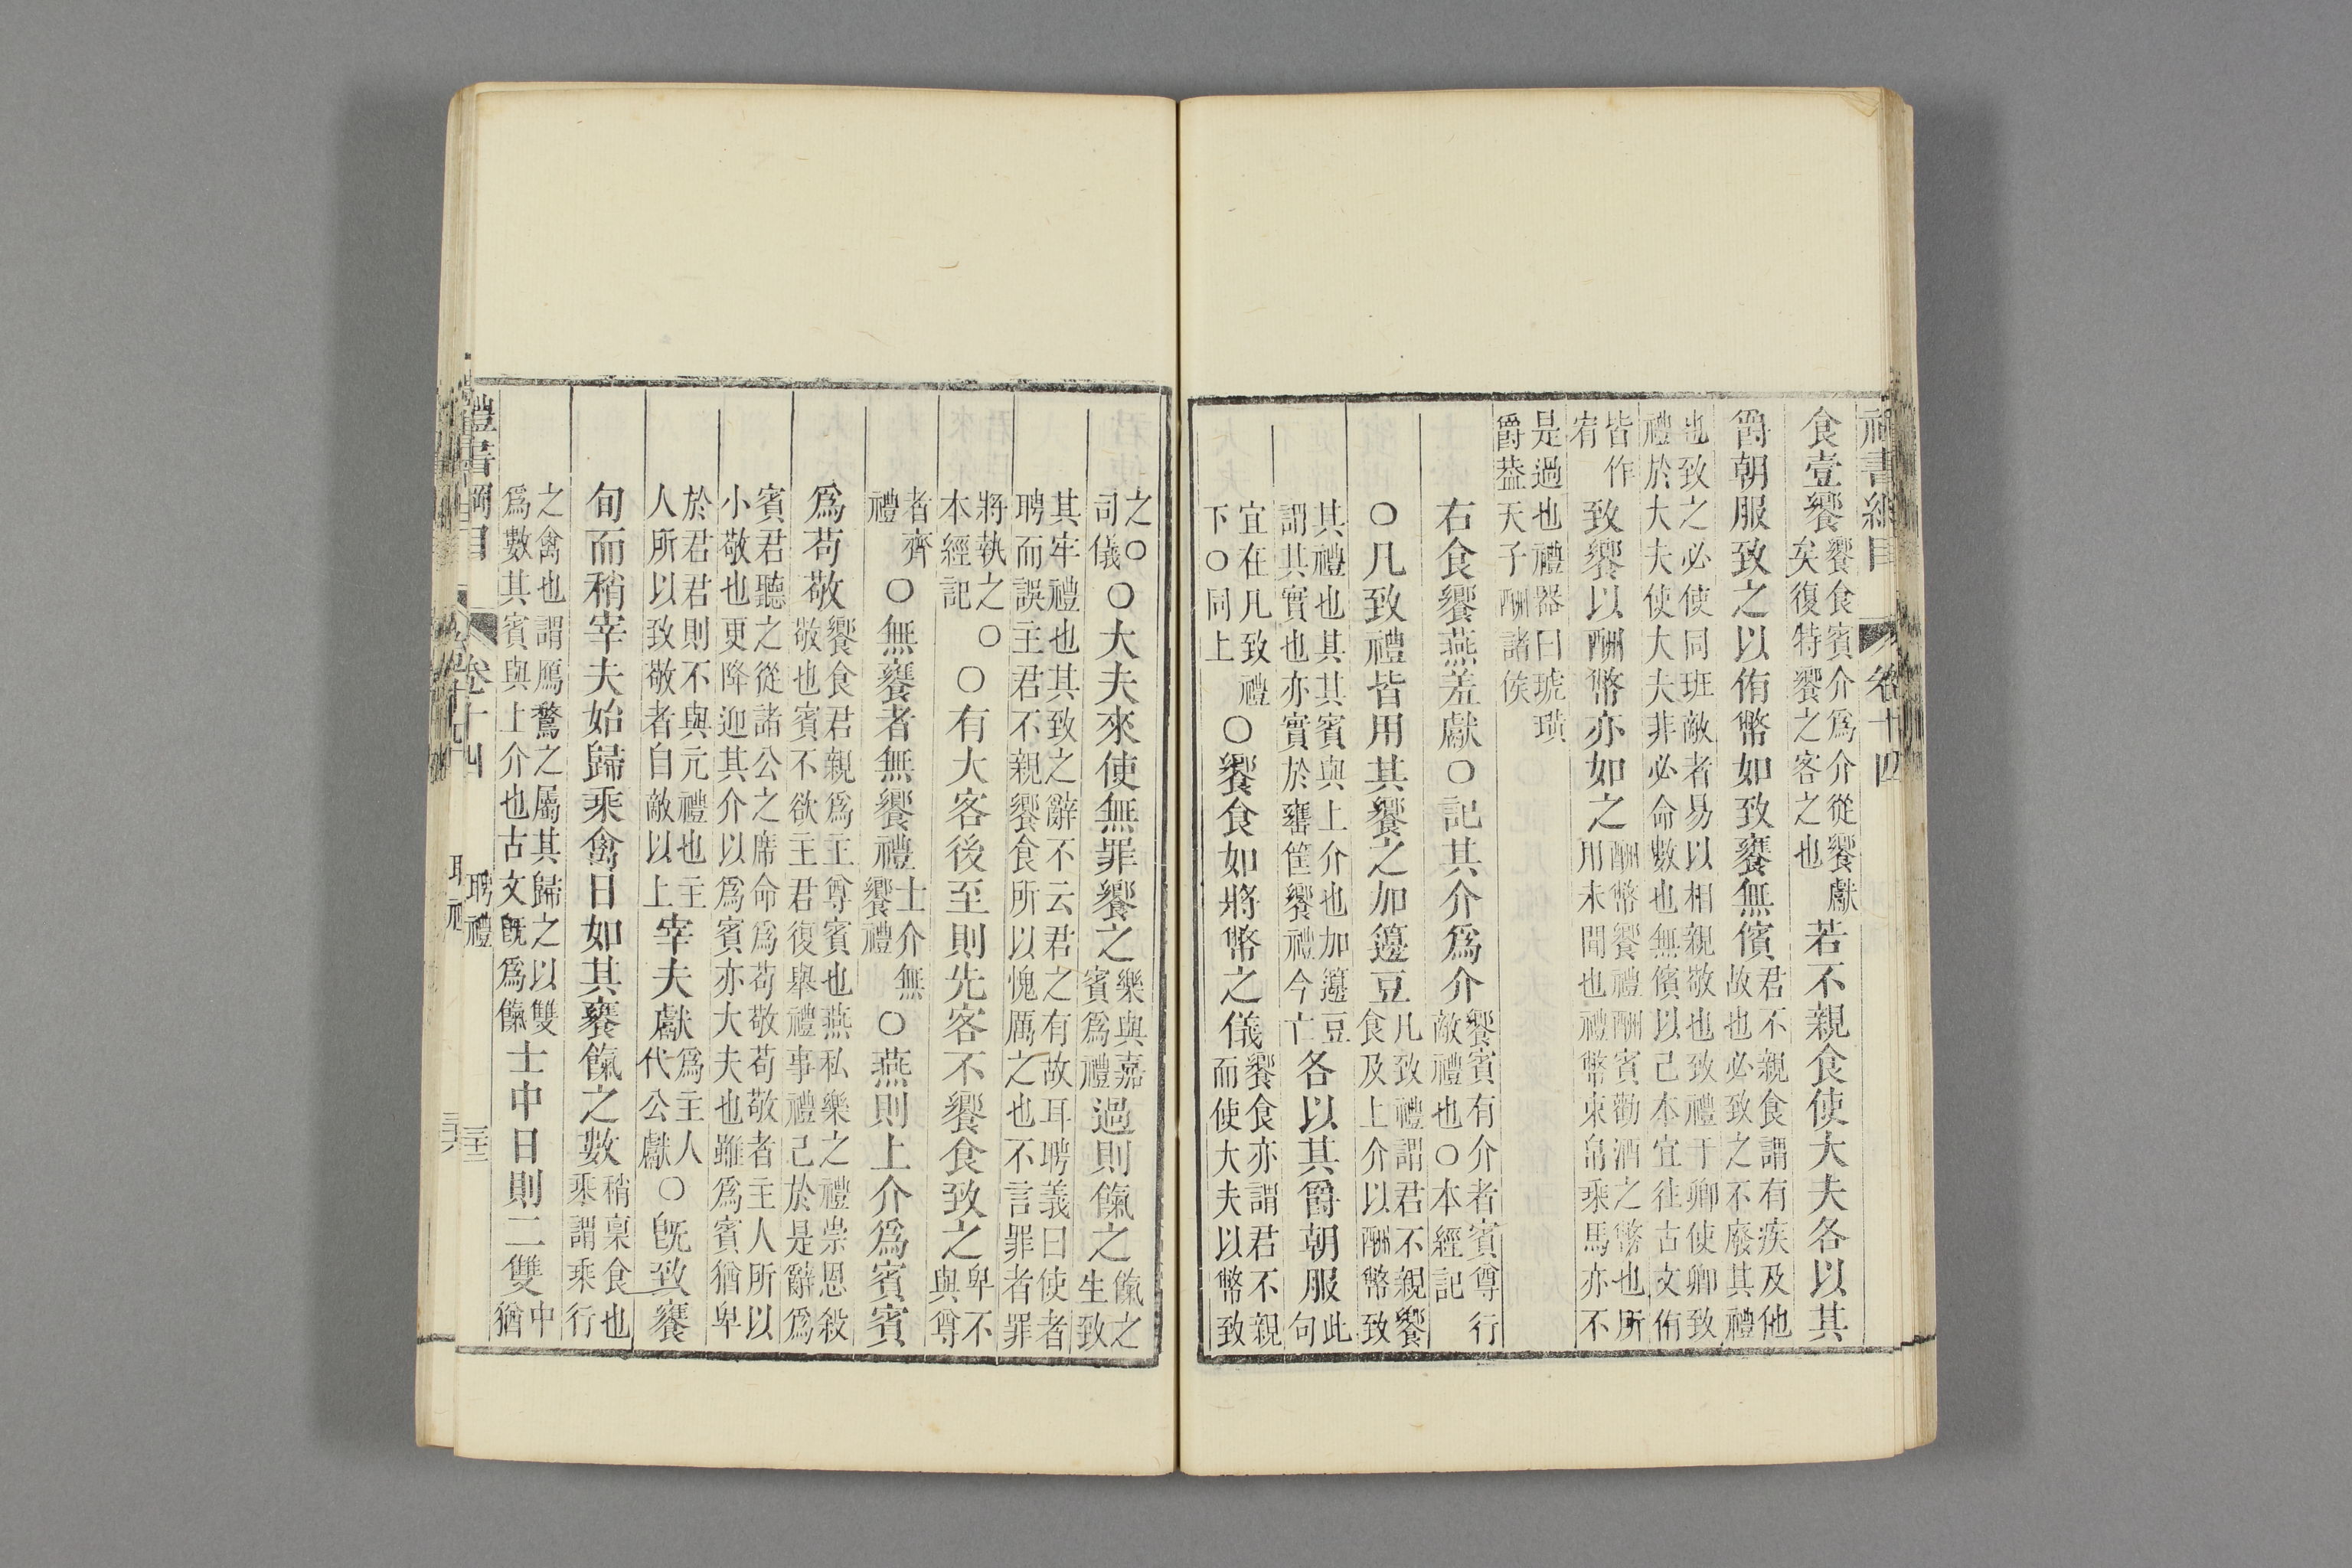 禮書綱目 卷十四
食壹饗饗食賓介爲介從饗獻矣復特饗之客之也若不親食使大夫各以其
爵朝服致之以侑幣如致饔無儐君不親食謂有疾及他故也必致之不廢其禮
也致之必使同班敵者易以相親敬也致禮于卿使卿致禮於大夫使大夫非必命數也無儐以己本宜往古文侑
皆作宥致饗以酬幣亦如之酬幣饗禮酬賓勸酒之幣也所用未聞也禮幣束帛乘馬亦不
是過也禮器曰琥璜爵葢天子酬諸侯
右食饗燕羞獻○記其介爲介饗賓有介者賓尊行敵禮也○本經記
○凡致禮皆用其饗之加籩豆凡致禮謂君不親饗食及上介以酬幣致
其禮也其其賓與上介也加籩豆謂其實也亦實於罋筐饗禮今亡各以其爵朝服此句
宜在凡致禮下○同上○饗食如將幣之儀饗食亦謂君不親而使大夫以幣致
之○司儀○大夫來使無罪饗之樂與嘉賓爲禮過則餼之餼之生致
其牢禮也其致之辭不云君之有故耳聘義曰使者聘而誤主君不親饗食所以愧厲之也不言罪者罪
將執之○本經記○有大客後至則先客不饗食致之卑不與尊
者齊禮○無饔者無饗禮士介無饗禮○燕則上介爲賓賓
爲苟敬饗食君親爲主尊賓也燕私樂之禮崇恩殺敬也賓不欲主君復舉禮事禮己於是辭爲
賓君聽之從諸公之席命爲苟敬苟敬者主人所以小敬也更降迎其介以爲賓亦大夫也雖爲賓猶卑
於君君則不與亢禮也主人所以致敬者自敵以上宰夫獻爲主人代公獻○旣致饔
旬而稍宰夫始歸乘禽日如其饔餼之數稍稟食也乘謂乘行
之禽也謂鴈鶩之屬其歸之以雙爲數其賓與上介也古文旣爲餼士中日則二雙中猶
禮書綱目 卷十四 聘禮 三十三